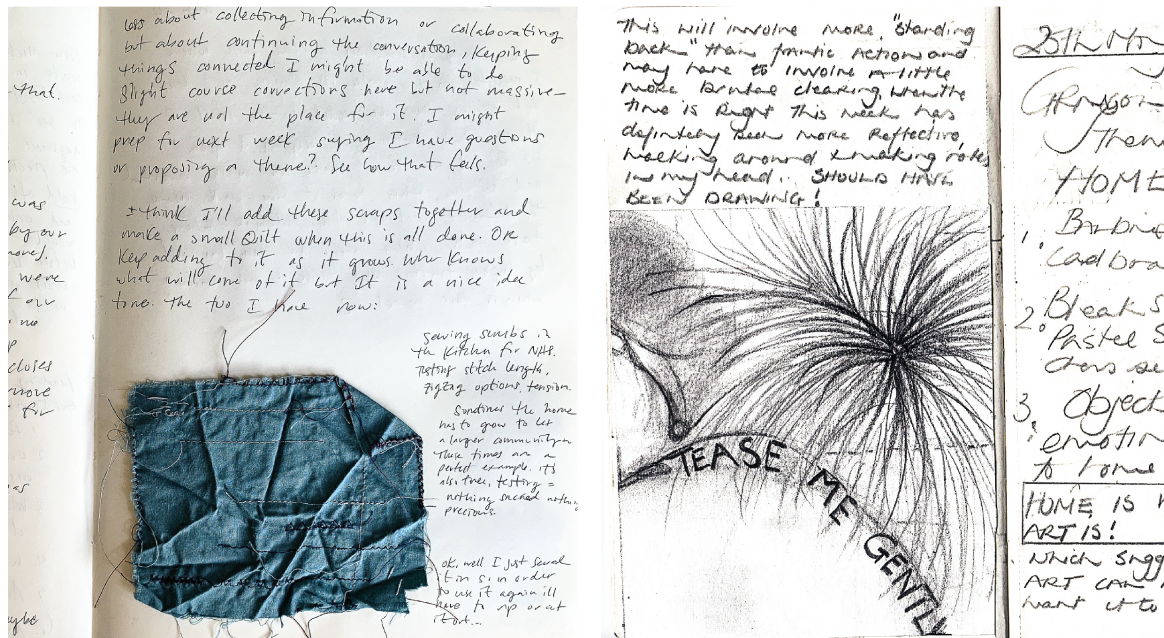 that.
was
by our
were
our
no
closes
more
for
as
maybe
less about collecting information or collaborating
but about continuing the conversation, keeping
things connected I might be able to do
slight cource corrections here but not massive -
they are not the place for it. I might
prep for next week saying I have questions
or proposing a theme? See how that feels.
I think I'll add these scraps together and
make a small Quilt when this is all done. Or
keep adding to it as it grows. Who knows
what will come of it but It is a nice idea
tome. The two I have now:
sewing scrubs in
the kitchen for NHS.
Testing stitch length,
zigzag options, tension.
Sometimes the home
has to grow to let
a larger community in
These times are a
perfect example. it's
also free, testing =
nothing sacred nothing
precious.
ok, well I just sewed
it in so in order
to use it again ill
have to rip or at
start...
This will involve more "standing
back" than frantic Action and
may have to involve a little
more brutal clearing, when the
time is Right This week has
definitely been more Reflective,
walking around & making notes
in my head.. SHOULD HAVE
BEEN DRAWING!
TEASE ME GENTLY
25th
Grayson
HOME
1.
2. Bleak
Pastel
3. Object
emotin
to home
HOME IS
ART IS!
which sugg
ART CAN
want it to